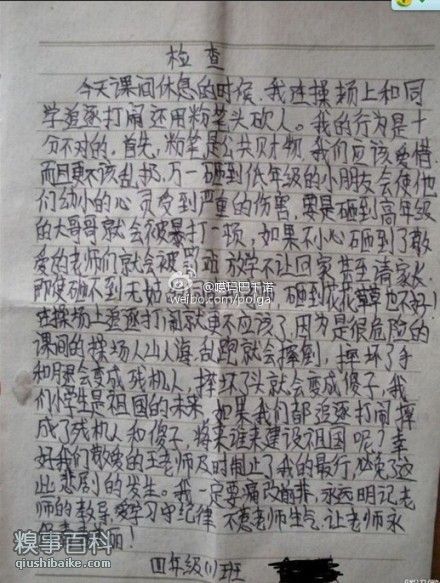 检查
今天课间休息的时候,我在操场上和同
学追逐打闹还用粉笔头砍人。我的行为是十
分不对的。首先,粉笔是公共财物,我们应该爱惜
而且更不该乱扔,万一砸到低年级的小朋友会使他
们幼小的心灵受到严重的伤害,要是砸到高年级
的大哥哥就会被暴打一顿,如果不小心砸到了敬
爱的老师们就会被罚站 放学不让回家 甚至请家长
即使砸不到无 砸到花花草草 也不好!
在操场上追逐打闹就更不应该了,因为是很危险的
课间的操场人山人海,乱跑就会摔倒,摔坏了手
和腿会变成残机人,摔坏了头就会变成傻子,我
们小学生是祖国的未来,如果我们都追逐打闹摔
成了残机人和傻子,将来谁来建设祖国呢?幸
好我们敬爱的王老师及时制止了我的最行,必免了这
些悲剧的发生。我一定要痛改前非,永远明记老
师的教导,爱学习守纪律 不惹老师生气,让老师永
!
四年级(1)班
@嘎玛巴千诺
weibo.com/polga
糗事百科
qiushibaike.com